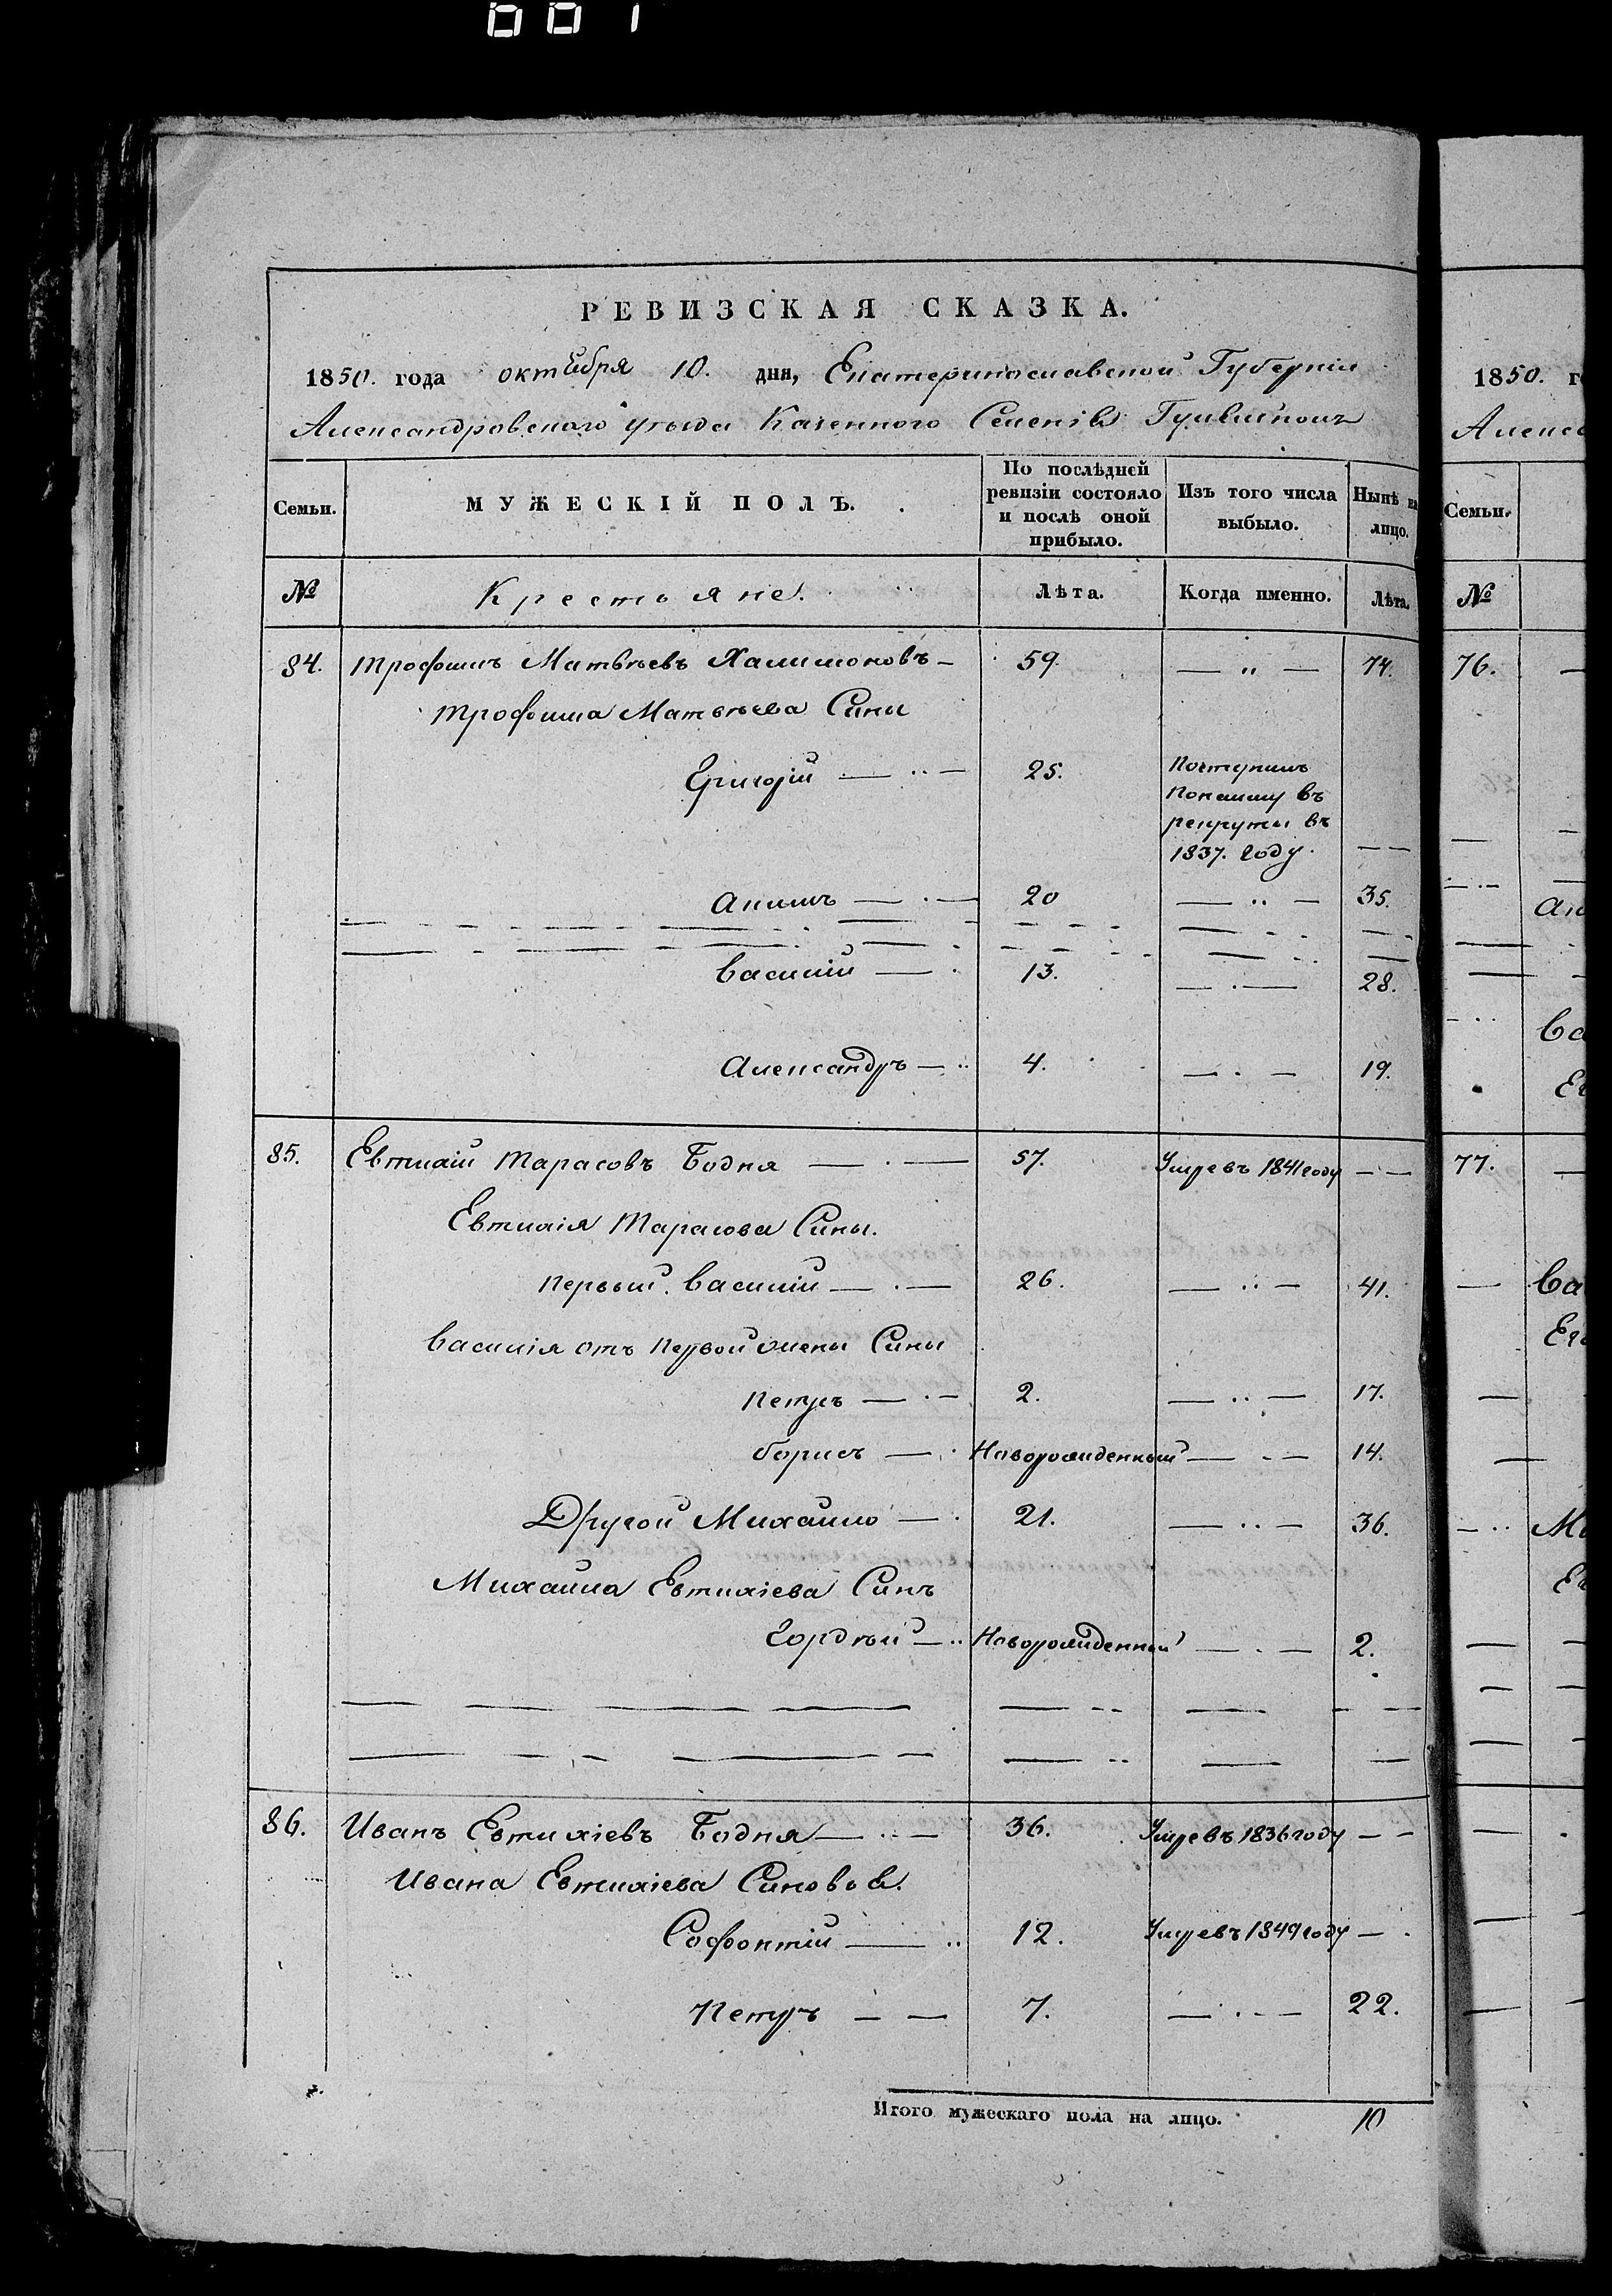 001
РЕВИЗСКАЯ СКАЗКА.
1850. года октября 10. дня, Екатеринославской Губернии
Александровского уезда Казенного Селенія Гуляйполь
Семьи. МУЖЕСКІЙ ПОЛЪ. По послѣдней ревизіи состояло и послѣ оной прибыло. Изъ того числа выбыло. Нынѣ на лицо.
№ Крестьяне. Лѣта. Когда именно. Лѣта.
84. Трофимъ Матвѣевъ Халимоновъ — 59. — " — 74.
Трофима Матвѣева Сины
Григорій — 25. Поступилъ
понайму въ
рекруты въ
1837. году. — —
Акимъ — 20 — " — 35.
Василій — 13. — . — 28.
Александръ — 4. — . — 19.
85. Евтихій Тарасовъ Бодня — . — 57. Умре въ 1841 году — —
Евтихія Тарасова Сины.
Первый. Василій — . — 26. — .. — 41.
Василія отъ первой жены Сины
Петръ — . — 2. — .. — 17.
Борисъ — . Новорожденный — . — 14.
Другой Михайло — . 21. — .. — 36.
Михайла Евтихіева Синъ
Гордѣй — .. Новорожденный — . — 2.
86. Иванъ Евтихіевъ Бодня — .. — 36. Умре въ 1836 году — —
Ивана Евтихіева Синовья.
Софонтій — .. 12. Умре въ 1849 году — .
Петръ — — 7. — . . — 22.
Итого мужескаго пола на лицо. 10
1850. г
Алекса
Семьи.
№
76. —
Ак
Ва
Ег
77. —
Ва
Ег
Ми
Ег